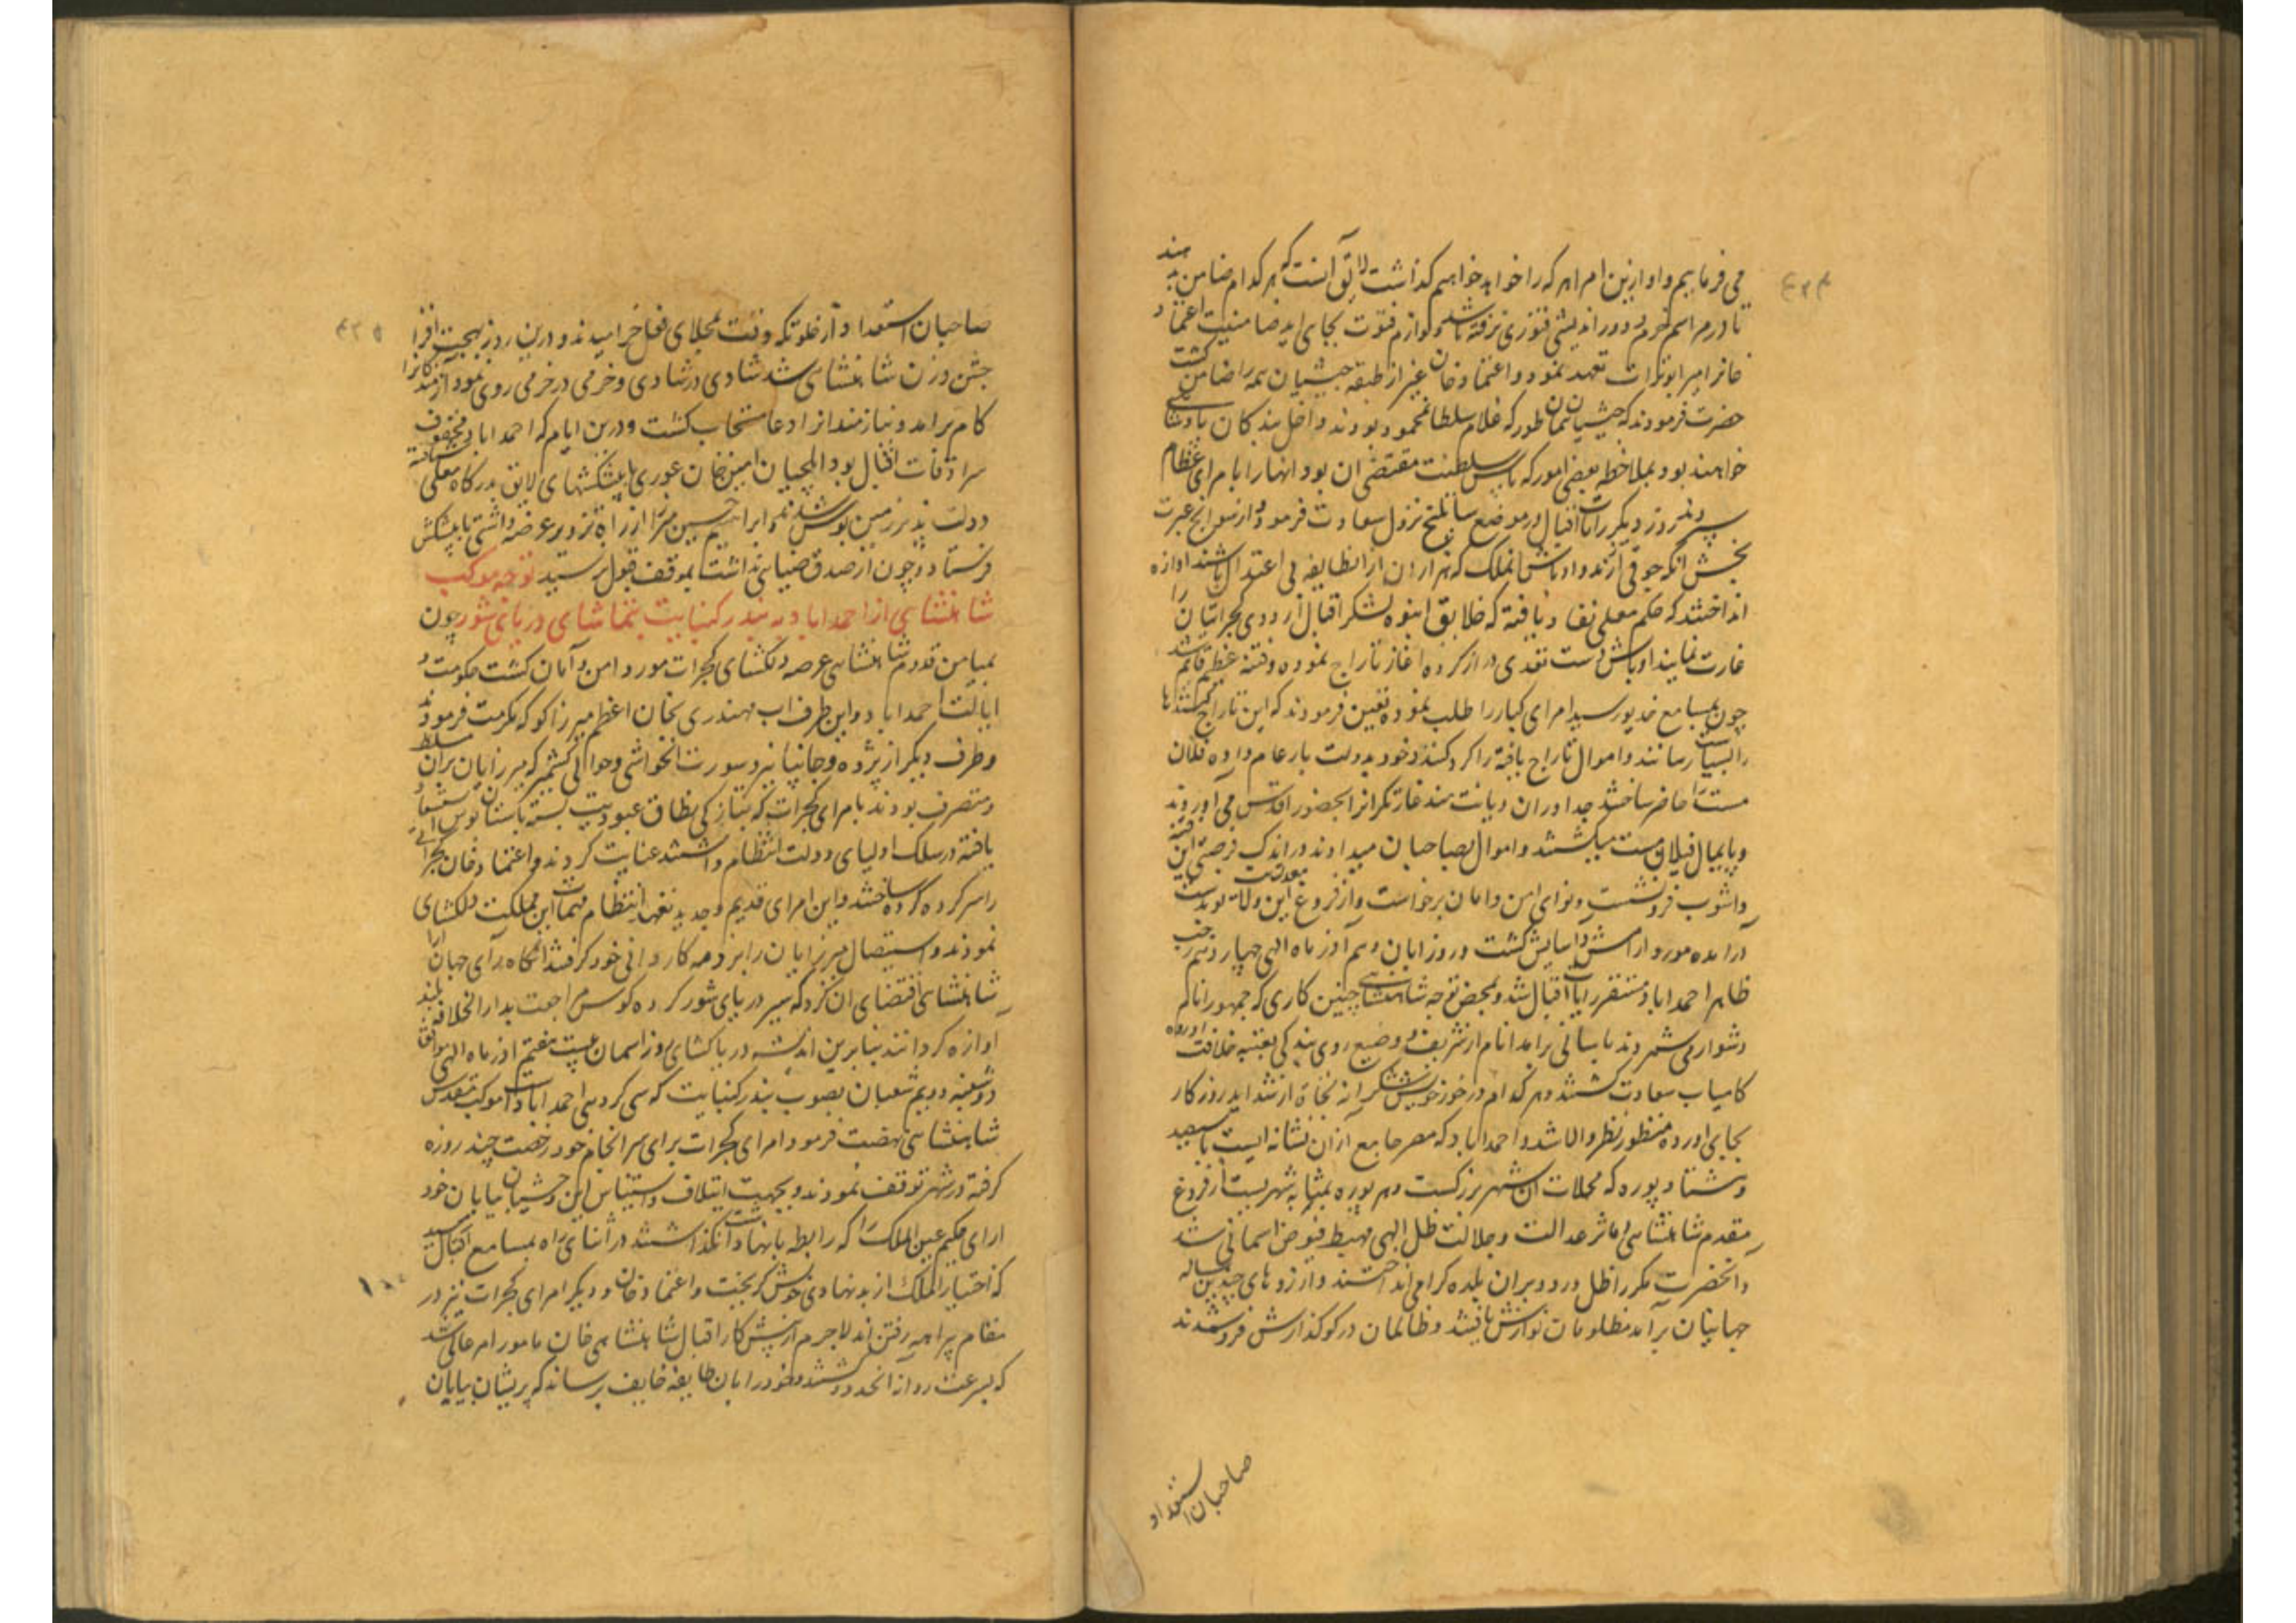 می فرماییم و او ازین امرا هر که را خواهد خواهیم گذاشت لایق آنست که هر کدام ضامن بدهند
تا در مراسم حزم و دور اندیشی فتوری نرفته باشد و لوازم فتوت بجای اید ضامنیت اعتماد
خانرا میر ابوتراب تعهد نمود و اعتماد خان غیر از طبقه حبشیان همه را ضامن گشت
حضرت فرمودند که حبشیان همان طور که غلام سلطان محمود بودند داخل بندگان پادشاهی
خواهند بود بملاحظه بعضی امور که پاس سلطنت مقتضی ان بود انها را با مرای عظام
سپردند روز دیگر رایات اقبال در موضع نزول سعادت فرمود و از سوانح عبرت
بخش انکه جوقی از رند و اوباش انملک که هزاران ازانطایفه بی اعتدال باشند اوازه
انداختند که حکم معلی نفاذ یافته که خلایق انبوه لشکر اقبال اردوی کجراتیان را
غارت نمایند اوباش دست تعدی دراز کرده اغاز تاراج نموده و فتنه عظیم قایم شد
چون بمسامع خدیو رسید امرای کبار را طلب نموده تعین فرمودند که این تاراج کنندها
را بسیاست رسانند و اموال تاراج یافته را کرد کنند و خود بدولت بار عام داده فیلان
مست را حاضر ساختند جداوران دیانت مند غارتکرانرا بحضور اقدس می اوردند
و پایمال فیلان مست میکشتند و اموال بصاحبان میدادند در اندک فرصتی این فتنه
و اشوب فرونشست و نوای امن و امان برخاست و از فروغ این ولات نوبدست معدلت
درامده مورد ارامش و اسایش کشت و روز ابان دهم آذر ماه الهی چهاردهم رجب
ظاهر احمداباد مستقر رایات اقبال شد و بمحض توجه شاهنشاهی چنین کاری که جمهور انام
دشوار می شمردند باسانی برامد انام از شریف و وضیع روی بندکی بعتبه خلافت اورده
کامیاب سعادت گشتند و هر کدام در خور خویش شکرانه نجاة از شداید روزکار
بجای اورده منظور نظر والا شد و احمداباد که مصر جامع ازان نشانه ایست با سیصد
و هشتاد پوره که محلات ان شهر بزرکست و هر پوره بمثابه شهریست از فروغ
مقدم شاهنشاهی و ماثر عدالت و جلالت ظل الهی مهبط فیوض اسمانی شد
و انحضرت مکرر ظل ورود بران بلده کرامی انداختند و ارزوهای چندین ساله
جهانیان برآمد مظلومان نوازش یافتند و ظالمان در کو کذارش فروشدند
صاحبان استعداد
صاحبان استعداد از خلوتکه وقت بمجلای فعل خرامیدند و درین روز بهجت افزا
جشن وزن شاهنشاهی شد شادی در شادی و خرمی در خرمی روی نمود ازمندکانرا
کام برامد و نیازمندانرا دعا مستجاب کشت و درین ایام که احمداباد مخیم
سرادقات اقبال بود ایلچیان امین خان غوری با پیشکشهای لایق بدرکاه معلی شتافته
دولت پذیر زمین بوس شدند و ابراهیم حسین میرزا از راه تزویر عرضه داشتی با پیشکش
فرستاد و چون از صدق ضیایی نداشت بموقف قبول نرسید توجه موکب
شاهنشاهی از احمداباد به بندر کنبایت بتماشای دریای شور چون
بمیامن قدوم شاهنشاهی عرصه دلکشای کجرات مورد امن و آمان کشت حکومت و
ایالت احمداباد و این طرف اب مهندری بخان اعظم میرزا کوکه مکرمت فرمودند
و طرف دیکر از بروده و جانپانیر و سورت انحواشی و حوالی کشمیر که میرزایان بران مسلط
و متصرف بودند با مرای کجرات که بتازکی نطاق عبودیت بسته باستان بوس استسعاد
یافته در سلک اولیای دولت انتظام داشتند عنایت کردند و اعتماد خان کجراتی
را سر کرده کرده ساختند و این امرای قدیم و جدید تعهد انتظام مهمات این مملکت دلکشای
نمودند و استیصال میرزایان را بر ذمه کاردانی خود کرفتند انکاه رآی جهان ارا
شاهنشاهی اقتضای ان کرد که سیر دریای شور کرده کوس مراجعت بدارالخلافه بلند
اوازه کردانند بنابرین اندیشه دریاکشای روز اسمان بیست هفتم اذر ماه الهی موافق
دوشنبه دویم شعبان بصوب بندر کنبایت که سی کروهی احمداباد است موکب مقدس
شاهنشاهی نهضت فرمود امرای کجرات برای سرانجام خود رخصت چند روزه
کرفته در شهر توقف نمودند و بجهت ایتلاف و استیناس این وحشیان بیابان خود
ارای حکیم عین الملک را که رابطه بانها داشت انجا کذاشتند در اثنای راه بمسامع اقبال رسید
که اختیار الملک از بد نهادی خویش کریخت و اعتماد خان و دیکر امرای کجرات نیز در
مقام پراهه رفتن اند لاجرم از پیش کار اقبال شاهنشاهی خان مامور امر عالی شد
که بسرعت روانه انحدود شده و خود را بان طایفه خایف برساند که پریشان بیابان